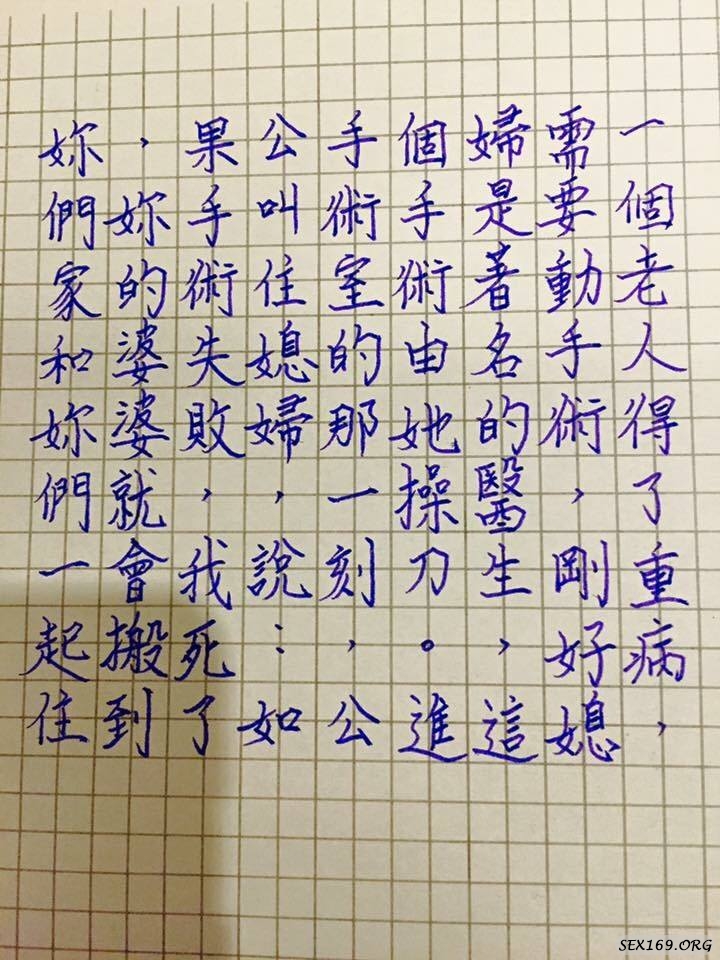 一個老人得了重病，
需要動手術，剛好媳
婦是著名的醫生，這
個手術由她操刀。進
手術室的那一刻，公
公叫住媳婦，說：如
果手術失敗，我死了
，妳的婆婆就會搬到
妳們家和妳們一起住
SEX169.ORG